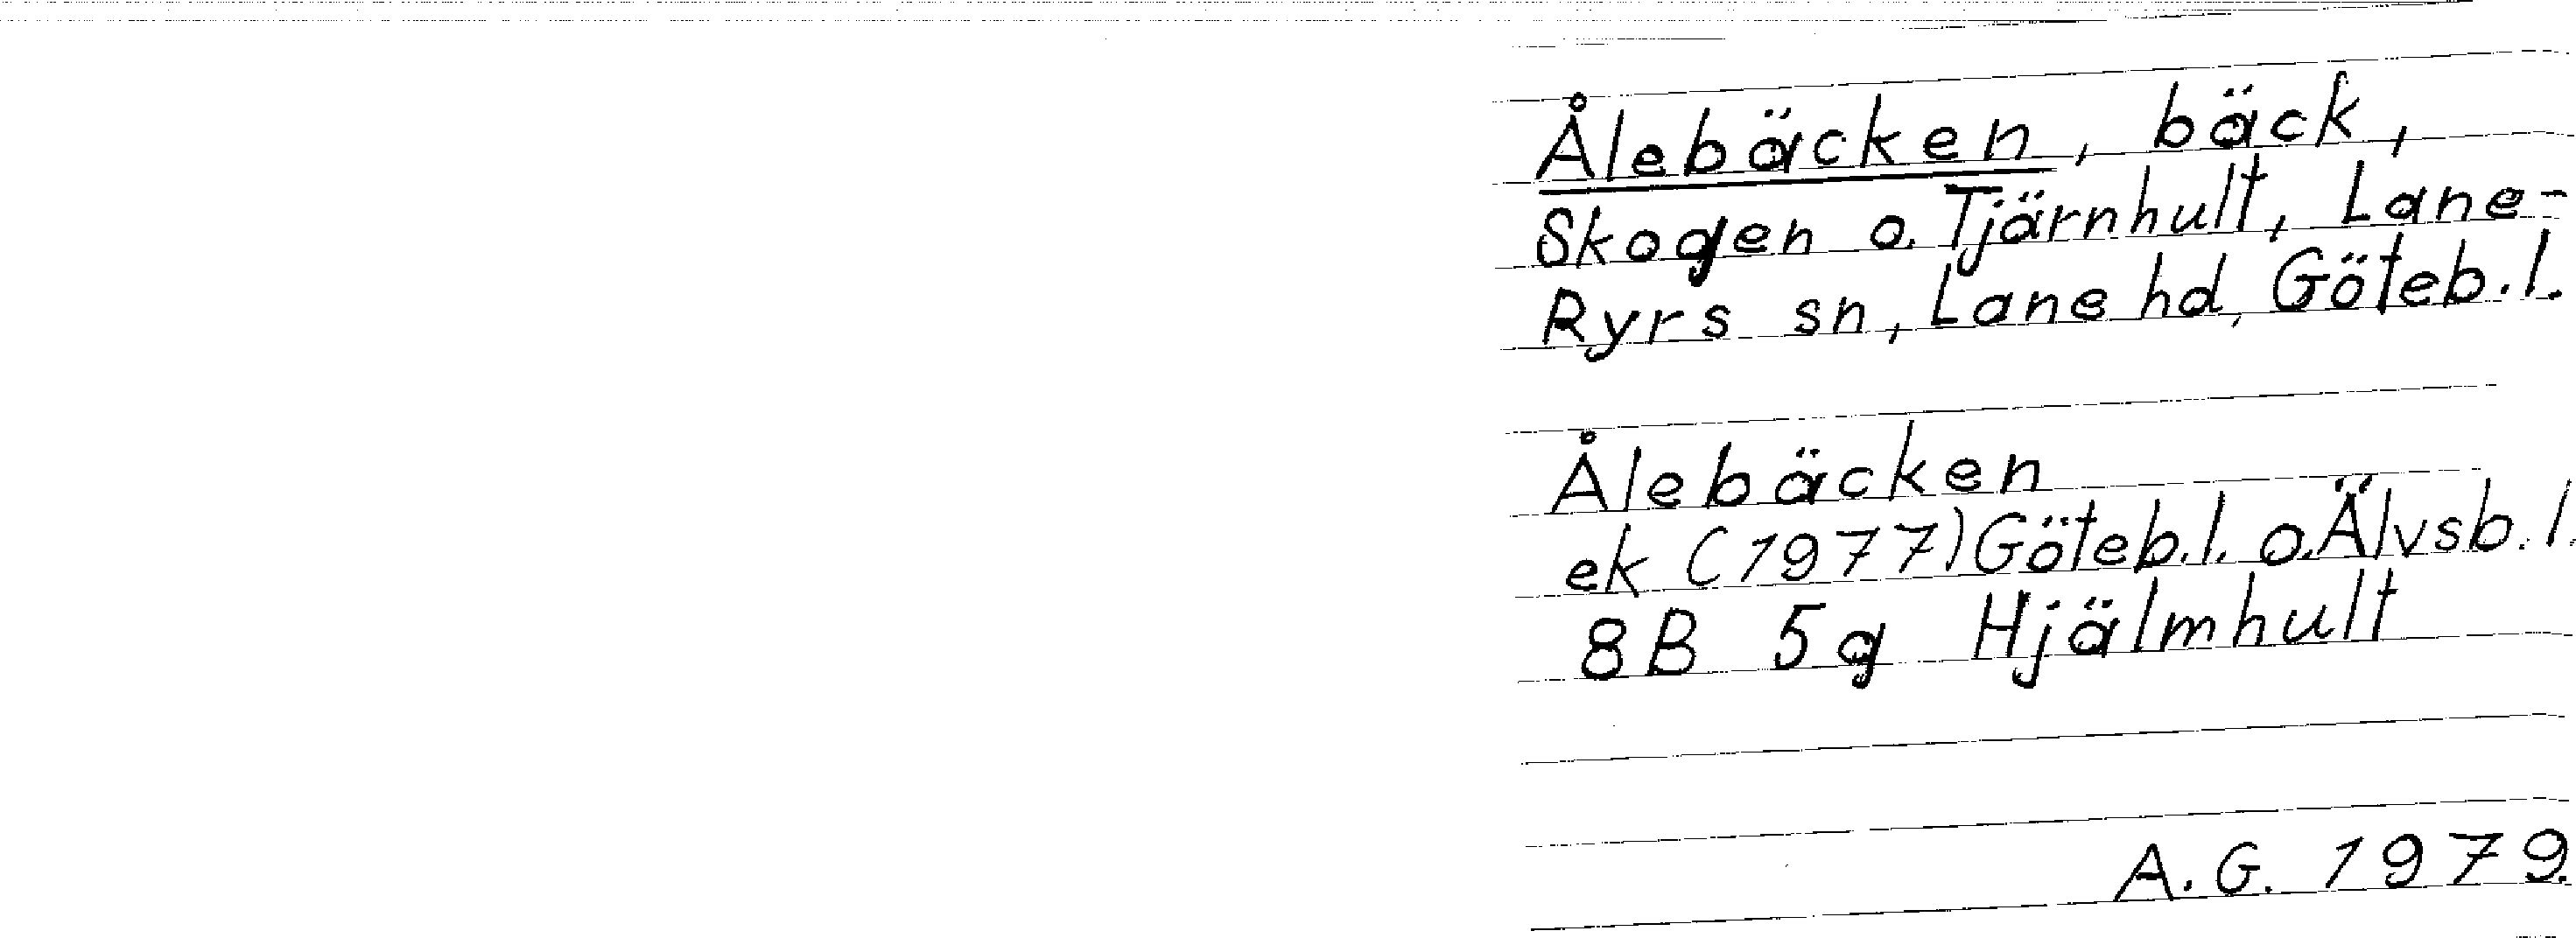 Ålebäcken, bäck,
Skogen o. Tjärnhult, Lane-
Ryrs sn, Lane hd, Göteb.l.
Ålebäcken
ek (1977) Göteb.l. o. Älvsb.l.
8B 5g Hjälmhult
A.G. 1979.